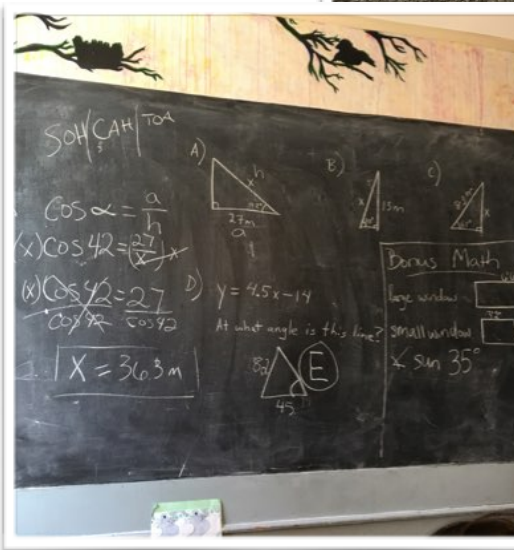 SOH/CAH/TOA
cos α = a/h
(x)cos 42 = (27/x)x
(x)cos 42 = 27
cos 42 cos 42
X = 36.3 m
A)
h
x
27m
a
B)
x
15m
C)
x
D) y = 4.5x - 14
At what angle is this line?
82
E
45
Bonus Math
large window
small window
∡ sun 35°